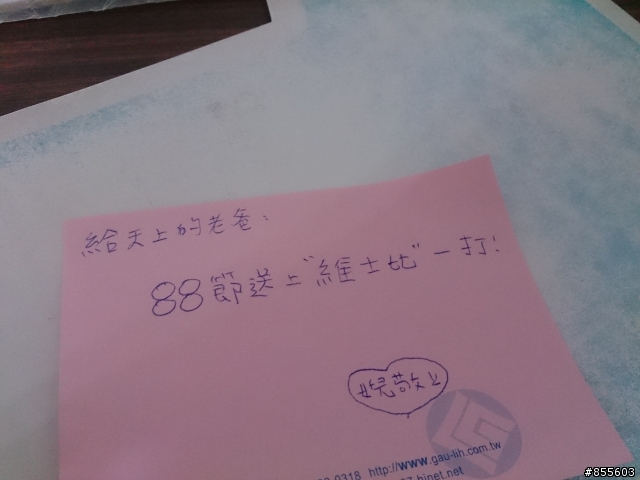 給天上的老爸：
88節送上"維士比"一打!
敬上
0318 http://www.gau-lih.com.tw
hinet.net
#855603